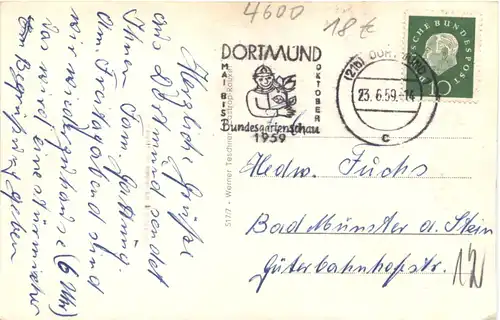 4600
18 €
DORTMUND
MAI BIS
OKTOBER
Bundesgartenschau
1959
(21b) DORTMUND
23.6.59-14
c
DEUTSCHE BUNDESPOST
10
Herzliche Grüße
aus Dortmund sendet
Ihnen Fam.
Am Freitagabend sind
wir wieder zuhause (6 Uhr)
das wird eine stürmische
Begrüßung geben
517/7 - Werner Teschner
Hedw. Fuchs
Bad Münster a. Stein
Güterbahnhofstr.
12